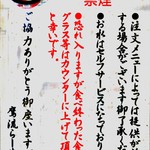 禁煙
●注文メニューによっては提供が
する場合がございます。ご了承
●お水はセルフサービスになっており
●恐れ入りますが食べ終り
グラス等はカウンターに上げて頂
と幸いです。
ご協力ありがとう御座います
鷹流らー